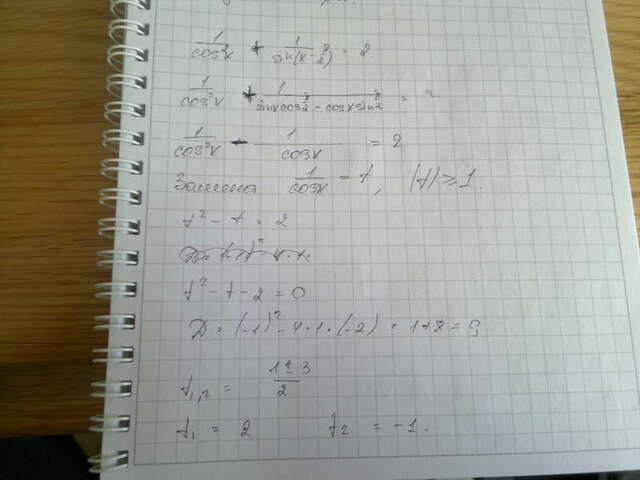 1/cos²x + 1/sin(x - π/2) = 2
1/cos²x + 1/(sinx cos π/2 - cosx sin π/2) = 2
1/cos²x - 1/cosx = 2
Замена 1/cosx = t, |t| ≥ 1.
t² - t = 2
t² - t - 2 = 0
D = (-1)² - 4·1·(-2) = 1+8 = 9
t₁,₂ = (1±3)/2
t₁ = 2 t₂ = -1.